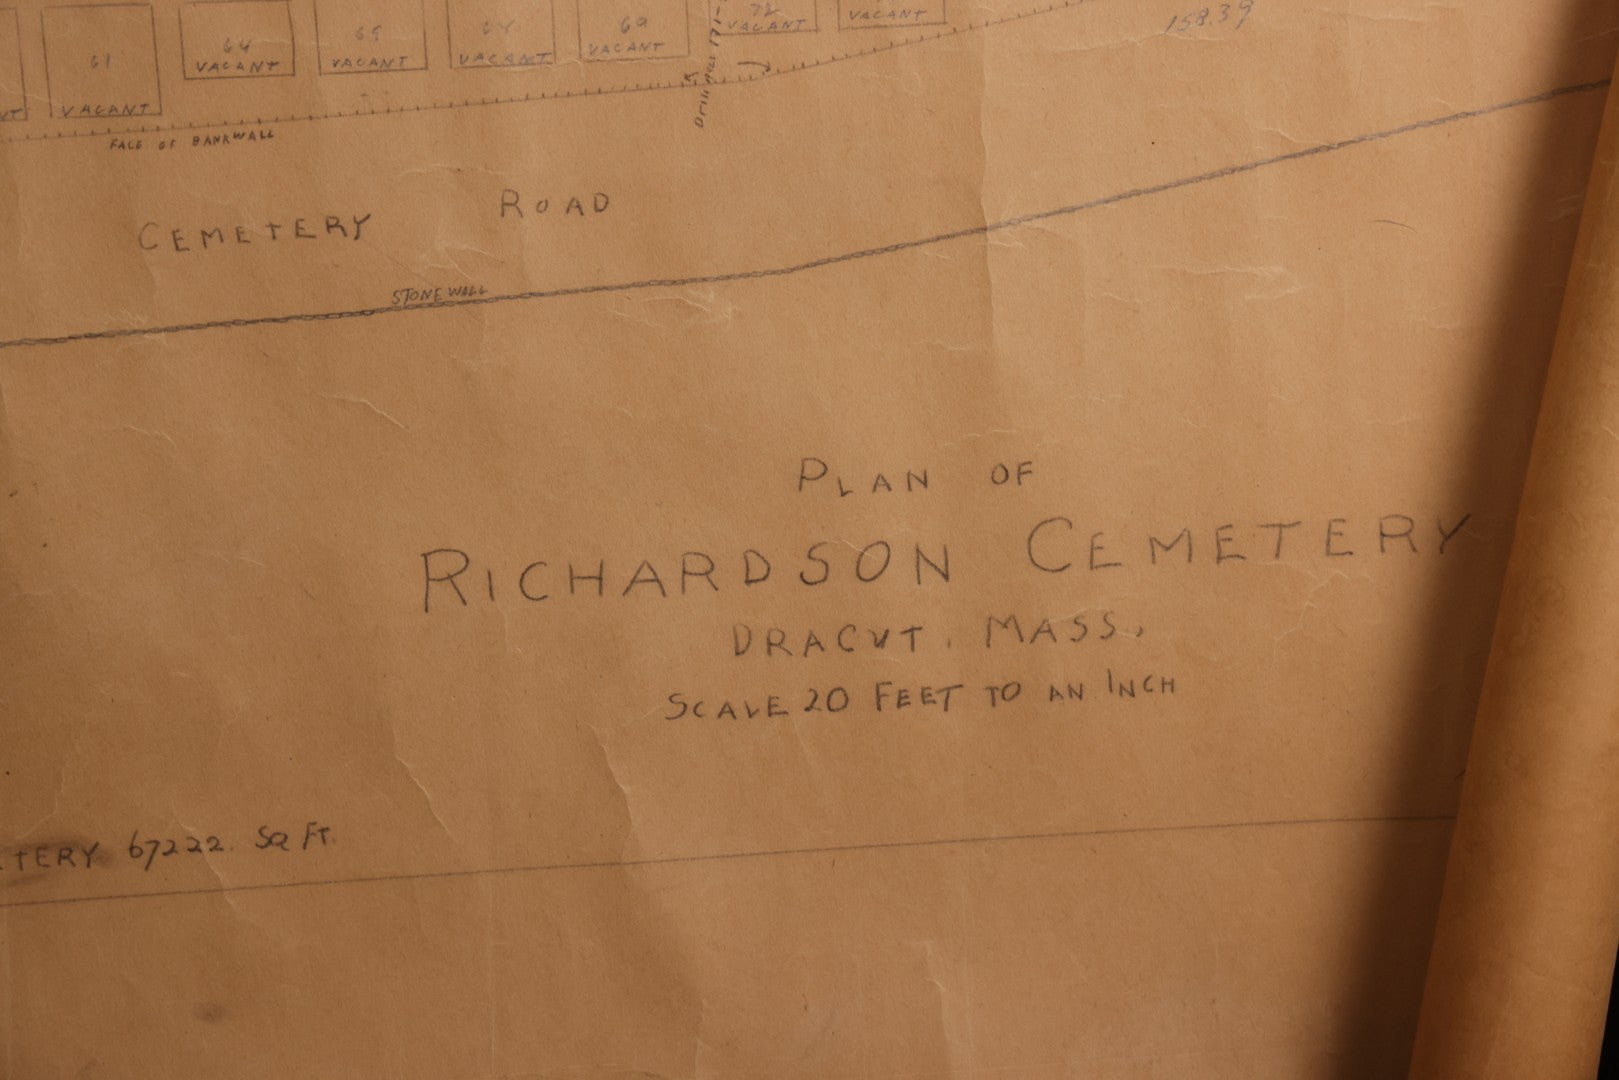 61
VACANT
64
VACANT
65
VACANT
VACANT
69
VACANT
72
VACANT
VACANT
158.39
FACE OF BANKWALL
Drill Hole
CEMETERY ROAD
STONEWALL
PLAN OF
RICHARDSON CEMETERY
DRACUT, MASS,
SCALE 20 FEET TO AN INCH
TERY 67222. SQ FT.